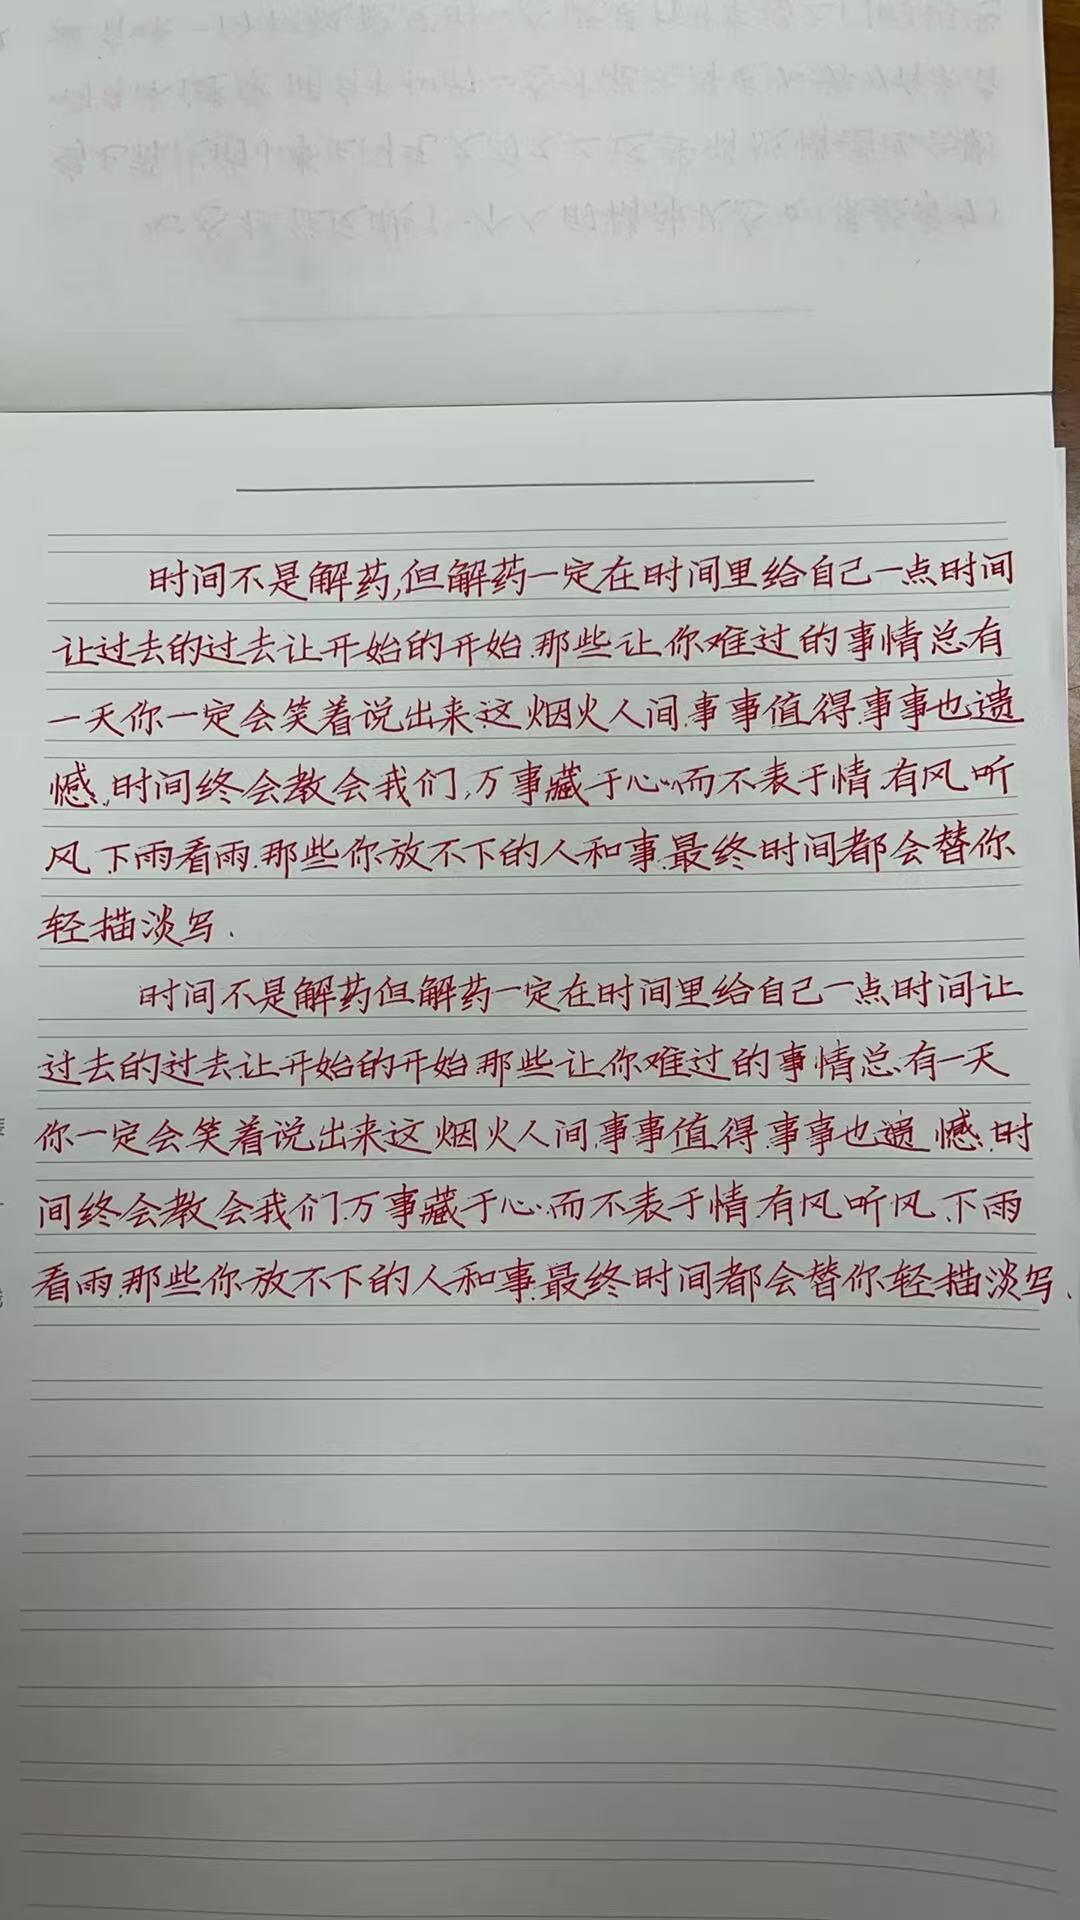 时间不是解药,但解药一定在时间里给自己一点时间
让过去的过去让开始的开始.那些让你难过的事情总有
一天你一定会笑着说出来.这烟火人间.事事值得.事事也遗
憾.时间终会教会我们,万事藏于心.而不表于情.有风听
风.下雨看雨.那些你放不下的人和事.最终时间都会替你
轻描淡写.
时间不是解药但解药一定在时间里给自己一点时间让
过去的过去.让开始的开始.那些让你难过的事情总有一天
你一定会笑着说出来这烟火人间.事事值得.事事也遗憾.时
间终会教会我们.万事藏于心.而不表于情.有风听风.下雨
看雨.那些你放不下的人和事.最终时间都会替你轻描淡写.